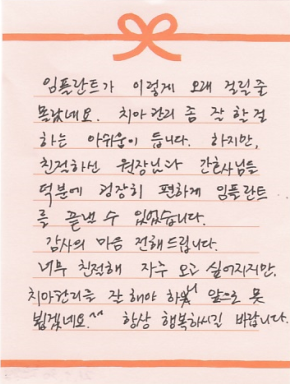 임플란트가 이렇게 오래 걸릴 줄
몰랐네요. 치아관리 좀 잘 할 걸
하는 아쉬움이 듭니다. 하지만,
친절하신 원장님과 간호사님들
덕분에 굉장히 편하게 임플란트
를 끝낼 수 있었습니다.
감사의 마음 전해드립니다.
너무 친절해 자주 오고 싶어지지만,
치아관리를 잘 해야 하니 앞으로 못
뵙겠네요.^^ 항상 행복하시길 바랍니다.